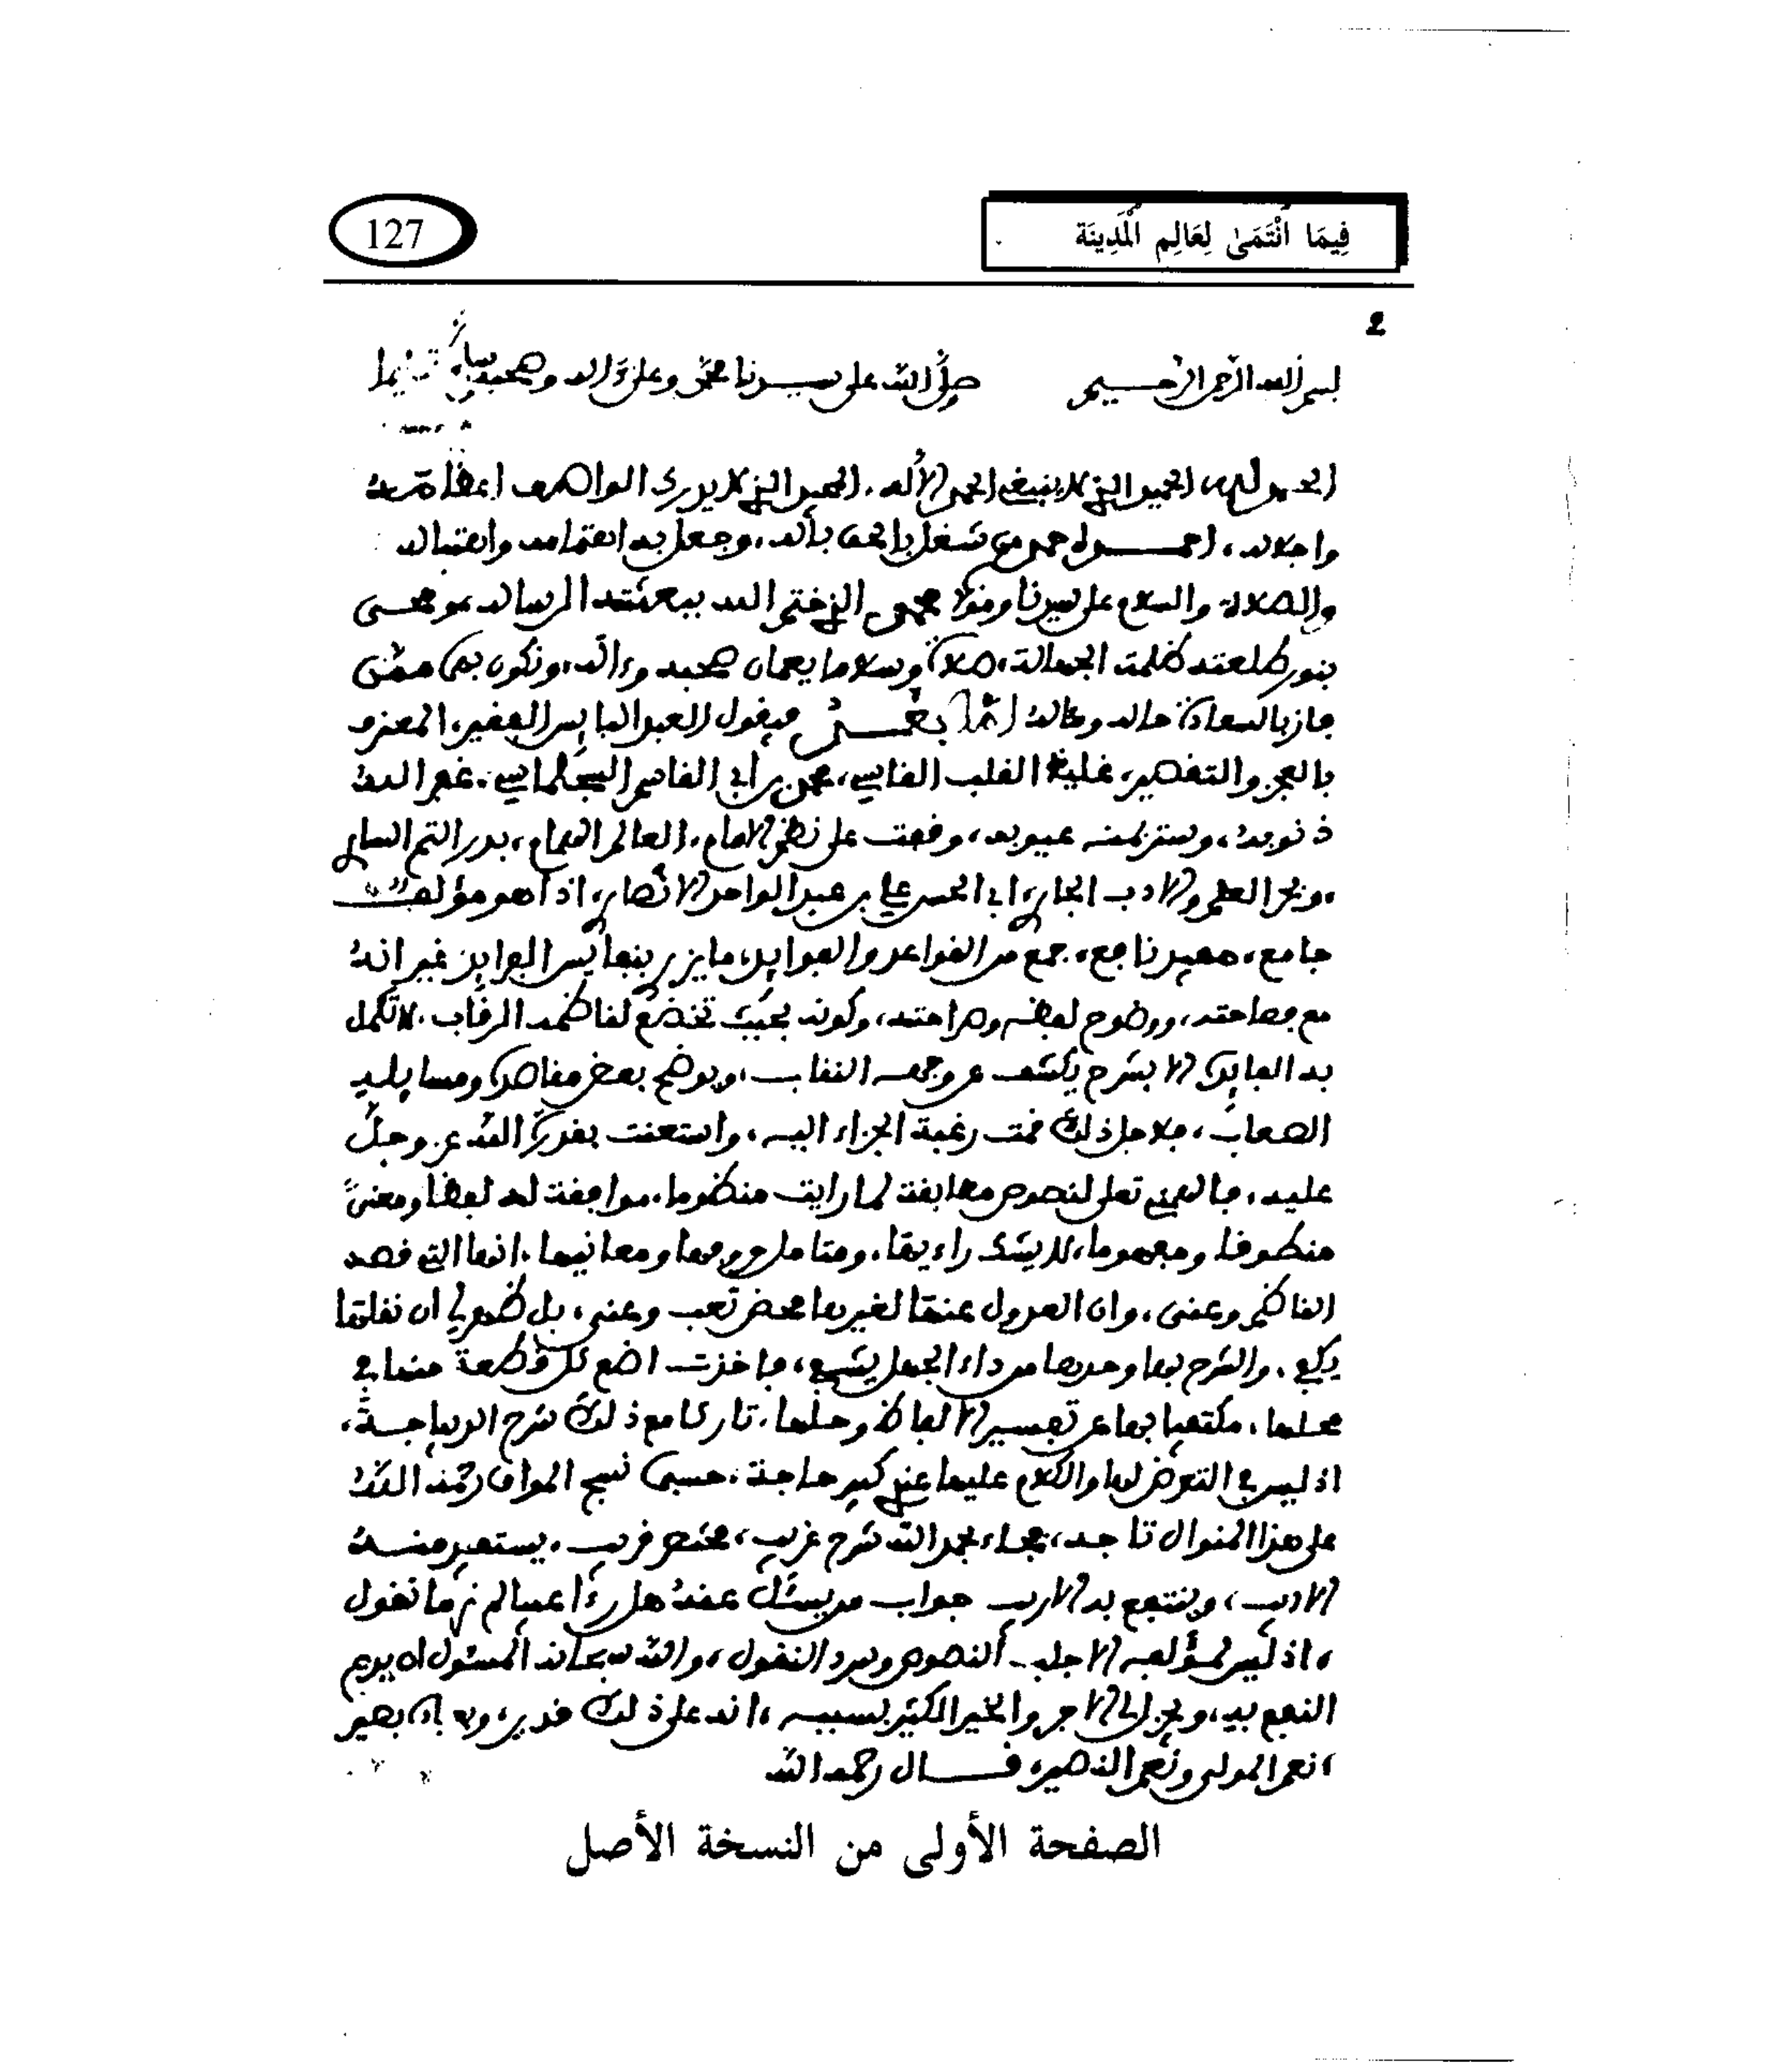 فِيمَا ٱنْتَمَىٰ لِعَالِمِ ٱلْمَدِينَة
127
2
بسم الله الرحمن الرحيم صلى الله على سيدنا محمد وعلى ءاله وصحبه وسلم تسليما
الحمد لله الحميد الذي لا ينبغي الحمد إلا له، المجيد الذي لا يدرك الواصف
واجلاله، احمده حمد من شغل بالحق باله، وجعل به اهتمامه واهتباله
والصلاة والسلام على سيدنا ومولانا محمد الذي ختم الله ببعثته الرسالة ومحى
بنور طلعته ظلمة الجهالة، صلاة وسلاما يعمان صحبه وءاله، ونكون بهما ممن
فاز بالسعادة حاله وماله اما بعد فيقول العبد البايس الفقير، المعترف
بالعجز والتقصير، غليظ القلب القاسي، محمد بن أبي القاسم السجلماسي، غفر الله
ذنوبه، وستر بمنه عيوبه، وقفت على نظم الامام، العالم الهمام، بدر التم الساري
، وبحر العلم والادب الجاري ابي الحسن علي بن عبد الواحد الانصاري، اذا هو مؤلف
جامع، مفيد نافع، جمع من القواعد والفوايد، ما يزري بنفايس الفرايد غير انه
مع فصاحته، ووضوح لفظه وصراحته، وكونه بحيث تخضع لناظمه الرقاب، لا تكمل
به الفايدة الا بشرح يكشف عن وجهه النقاب، ويوضح بعض مقاصده ومسايله
الصعاب، فلاجل ذلك قمت رغبة الجزاء اليه، واستعنت بقدرة الله عز وجل
عليه، فالهمني تعلى لنصوص مطابقة لما رايت منظوما، موافقة له لفظا ومعنى
منطوقا ومفهوما، لا يشك راءيها، ومتامل حروفها ومعانيها، انها التي قصد
الناظم وعنى، وان العدول عنها لغيرها محض تعب وعنى، بل ظهر لي ان نقلها
يكفي، والشرح بها وحدها من داء الجهل يشفي، فاخذت اضع كل قطعة منها في
محلها، مكتفيا بها عن تفسير الالفاظ وحلها، تاركا مع ذلك شرح الديباجة،
اذ ليس في التعرض لها والكلام عليها عندي كبير حاجة، حسبما نسج المواق رحمه الله
على هذا المنوال تاجه، فجاء بحمد الله شرح غريب، مختصر قريب، يستفيد منه
الاديب، وينتفع به الاريب جواب من يسئل عنه
، اذ ليس لمؤلفه الا جلب النصوص وسرد النقول، والله سبحانه المسئول ان يديم
النفع به، ويجزل لي الاجر والخير الكثير بسببه، انه على ذلك قدير، وبه بصير
، نعم المولى ونعم النصير، قال رحمه الله
الصفحة الأولى من النسخة الأصل